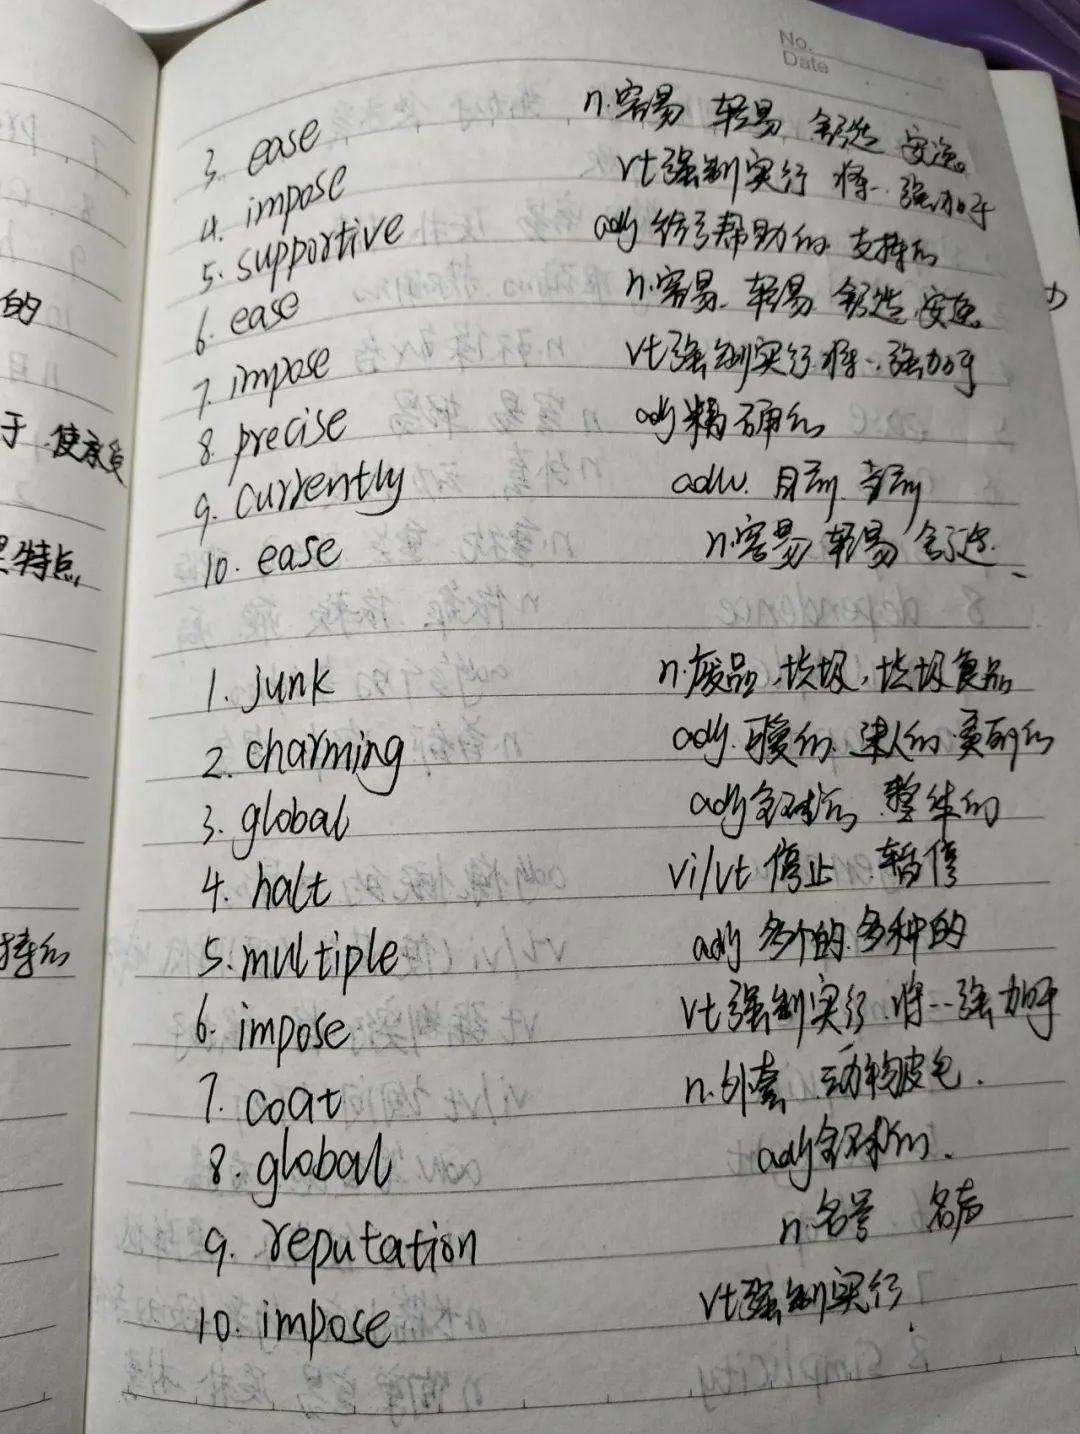 No.
Date
3. ease n.容易 轻易 舒适 安逸
4. impose vt强制实行 将… 强加于
5. supportive adj 给予帮助的 支持的
6. ease n.容易. 轻易 舒适 安逸
7. impose vt强制实行.将…强加于
8. precise adj精确的
9. currently adv. 目前. 当前
10. ease n.容易 轻易 舒适.
1. junk n.废品,垃圾,垃圾食品
2. charming adj.可爱的. 迷人的 美丽的
3. global adj全球的 整体的
4. halt vi/vt 停止 .暂停
5. multiple adj 多个的.多种的
6. impose vt强制实行.将…强加于
7. coat n.外套 动物皮毛.
8. global adj全球的.
9. reputation n.名誉 名声
10. impose vt强制实行.
的
于 使承
特点
持的
8 dependence
8 simplicity